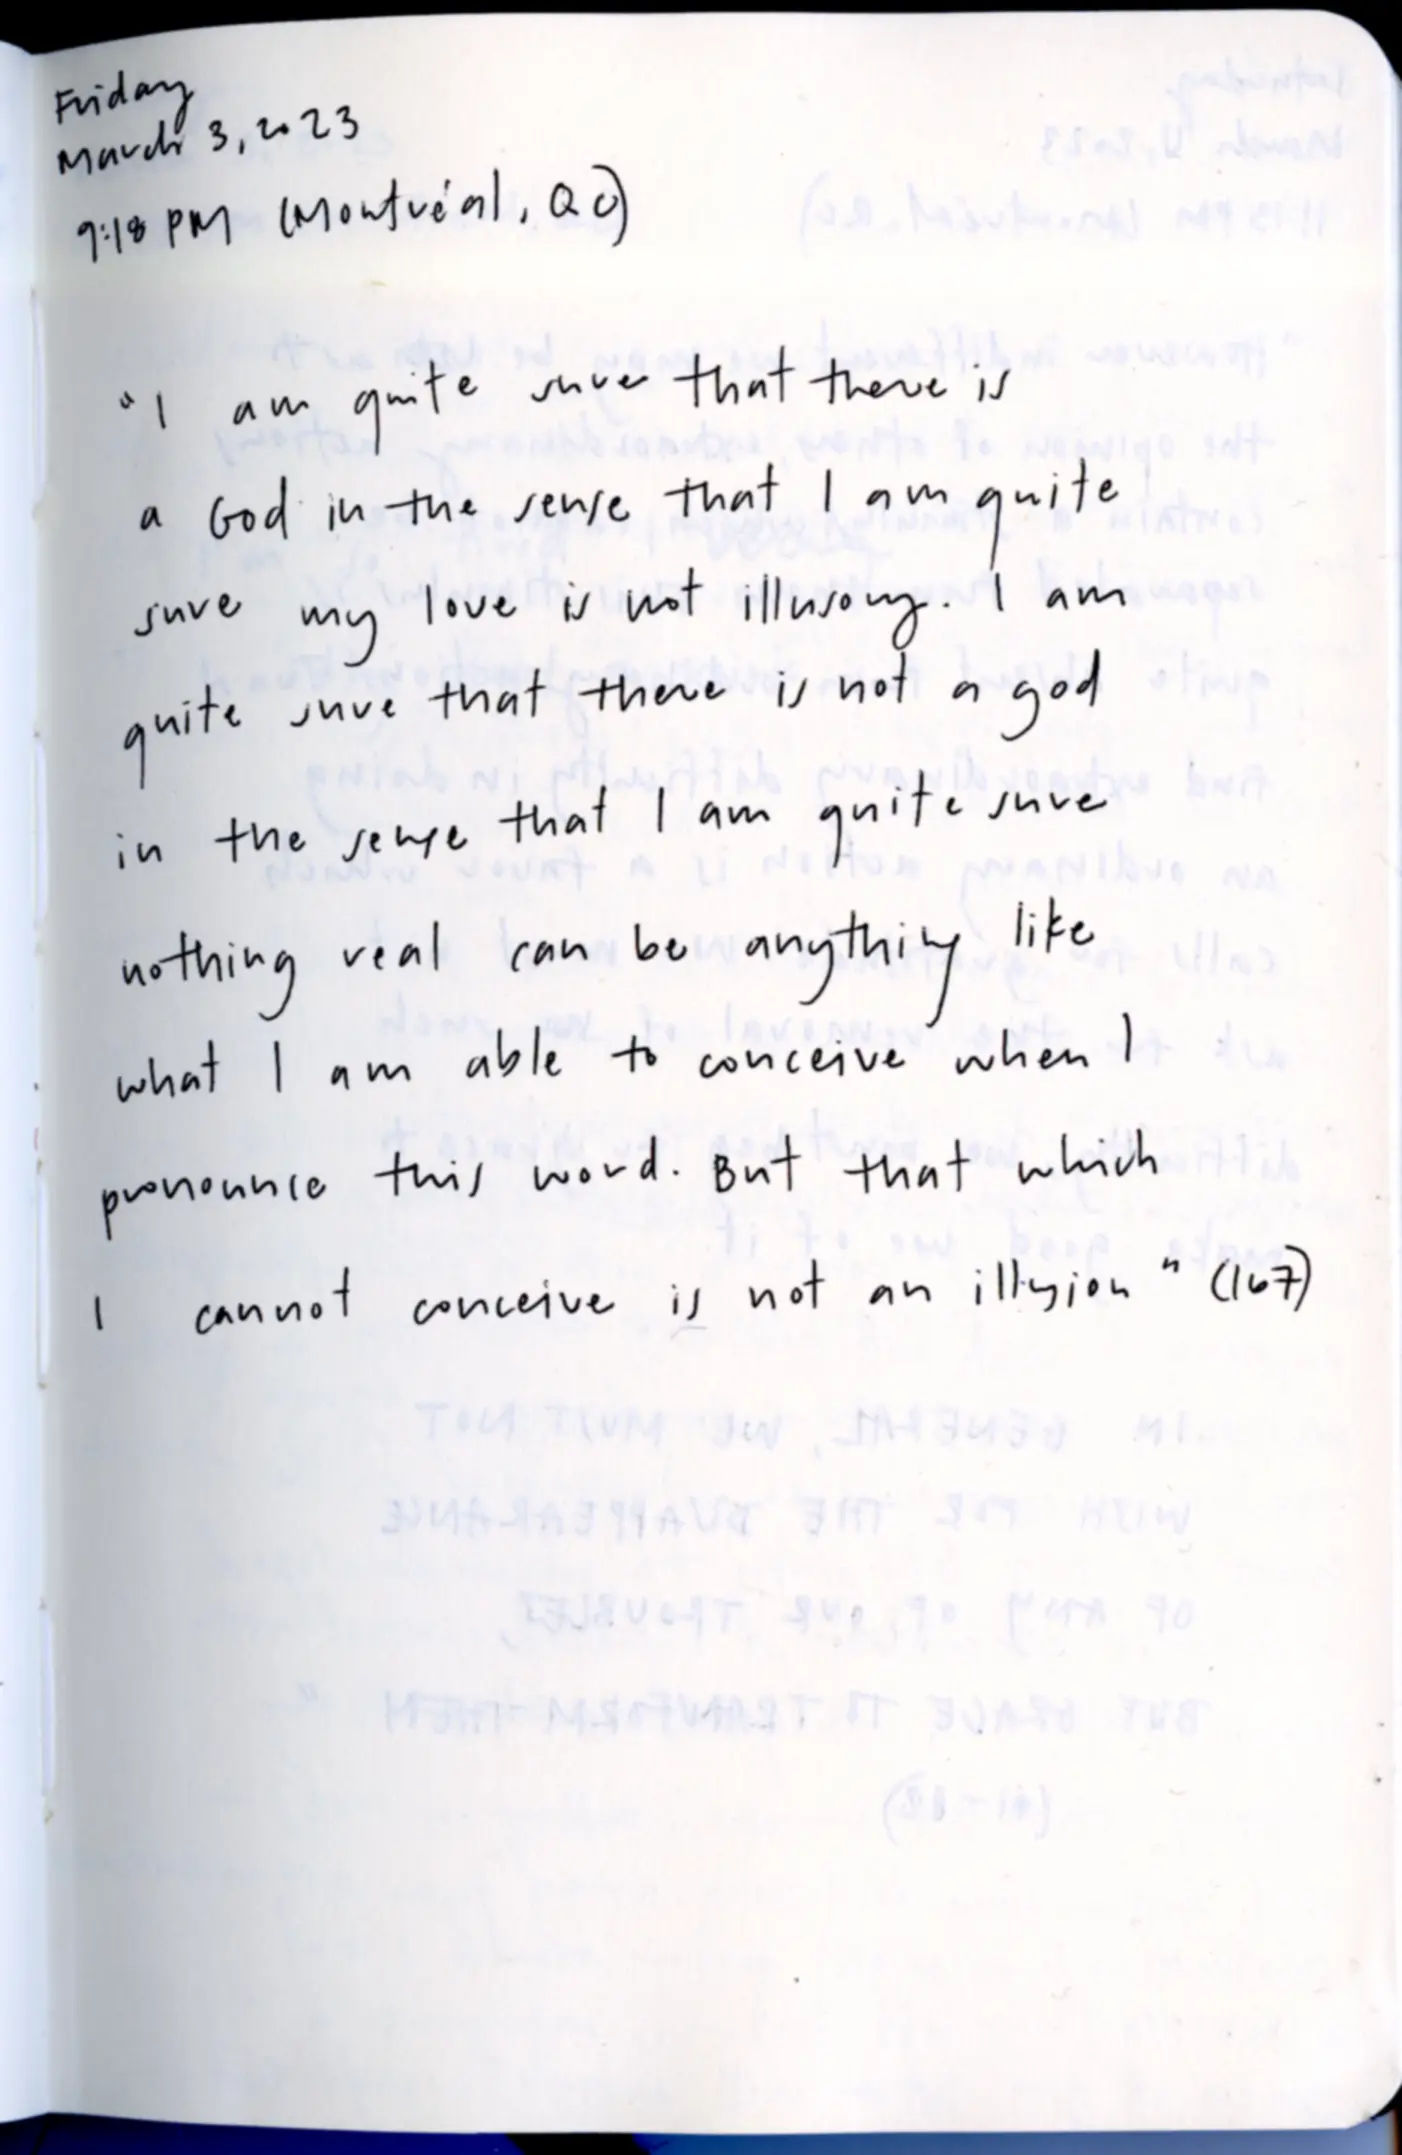 Friday
March 3, 2023
9:18 PM (Montréal, QC)
"I am quite sure that there is
a God in the sense that I am quite
sure my love is not illusory. I am
quite sure that there is not a god
in the sense that I am quite sure
nothing real can be anything like
what I am able to conceive when I
pronounce this word. But that which
I cannot conceive is not an illusion" (167)